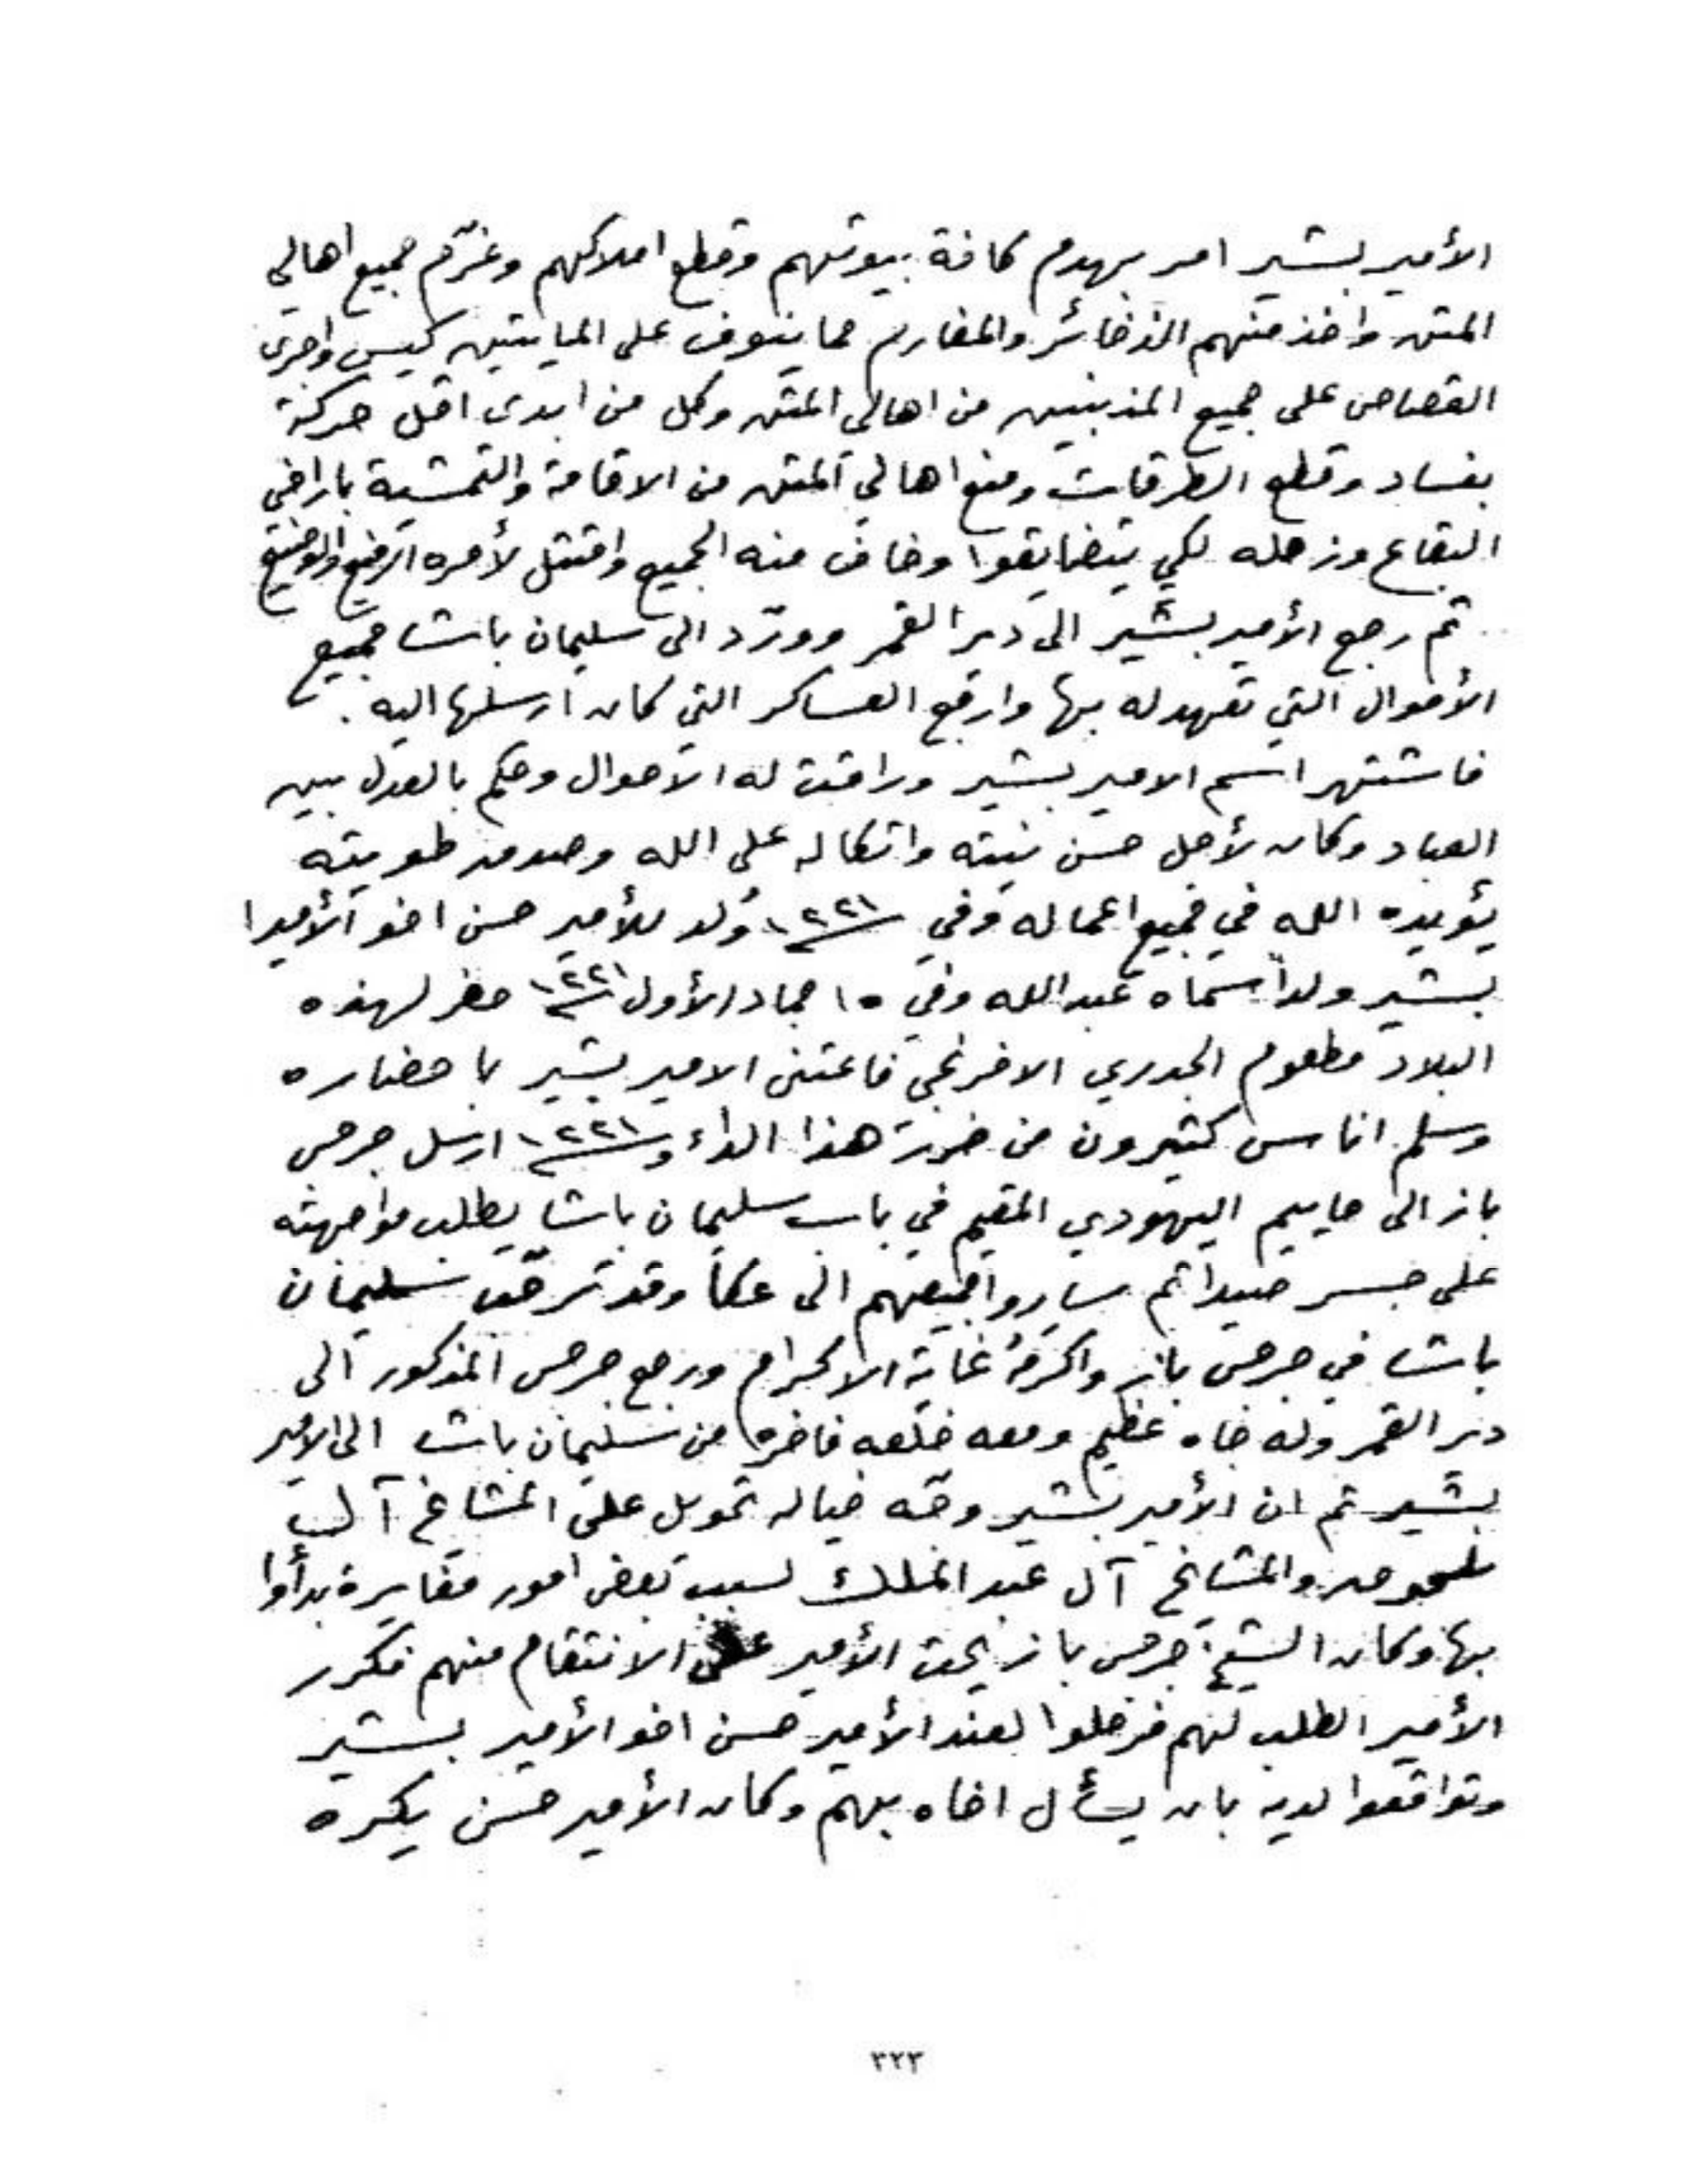 الأمير بشير امر بهدم كافة بيوتهم وقطع املاكهم وغرّم جميع اهالي
المتن واخذ منهم الذخائر والمغارم ما ينوف على المايتين كيس واجرى
القصاص على جميع المذنبين من اهالي المتن وكل من ابدى اقل حركة
بفساد وقطع الطرقات ومنع اهالي المتن من الاقامة والتمشية باراضي
البقاع وزحله لكي يتضايقوا وخاف منه الجميع وامتثل لأمره الرفيع والوضيع
ثم رجع الأمير بشير الى دير القمر وورّد الى سليمان باشا جميع
الأموال التي تعهد له بها وارفع العساكر التي كان ارسلها اليه .
فاشتهر اسم الامير بشير وراقت له الأحوال وحكم بالعدل بين
العباد وكان لأجل حسن نيته واتكاله على الله وصدق طويته
يؤيده الله في جميع اعماله وفي ١٢٢١ وُلد للأمير حسن اخو الأمير
بشير ولداً سماه عبدالله وفي ١٥ جماد الأول ١٢٢١ حضر لهذه
البلاد مطعوم الجدري الافرنجي فاعتنى الامير بشير باحضاره
وسلم اناس كثيرون من ضرر هذا الداء و ١٢٢١ ارسل جرجس
باز الى حاييم اليهودي المقيم في باب سليمان باشا يطلب مواجهته
على جسر صيدا ثم ساروا جميعهم الى عكا وقد ترحّب سليمان
باشا في جرجس باز واكرمهُ غاية الاكرام ورجع جرجس المذكور الى
دير القمر وله جاه عظيم ومعه خلعه فاخره من سليمان باشا الى الامير
بشير ثم ان الأمير بشير وجّه خياله تحويل على المشايخ آل
تلحوق والمشايخ آل عبد الملك لسبب بعض امور مغايرة بدأوا
بها وكان الشيخ جرجس باز يحث الأمير على الانتقام منهم فكرر
الأمير الطلب لهم فدخلوا لعند الأمير حسن اخو الأمير بشير
وتواقعوا لديه بان يسأل اخاه بهم وكان الأمير حسن يكره
٣٢٣